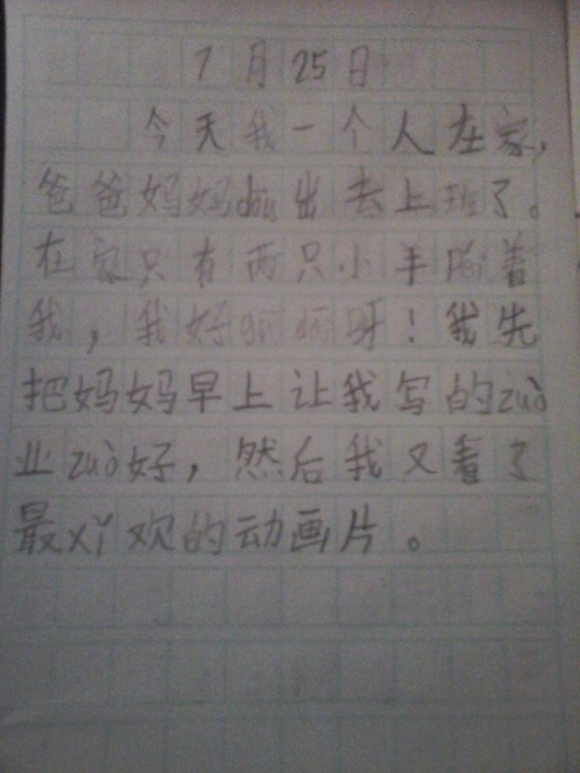 7月25日
今天我一个人在家,
爸爸妈妈dōu出去上班了。
在家只有两只小羊péi着
我,我好gū dú呀!我先
把妈妈早上让我写的zuò
业zuò好,然后我又看了
最xǐ欢的动画片。